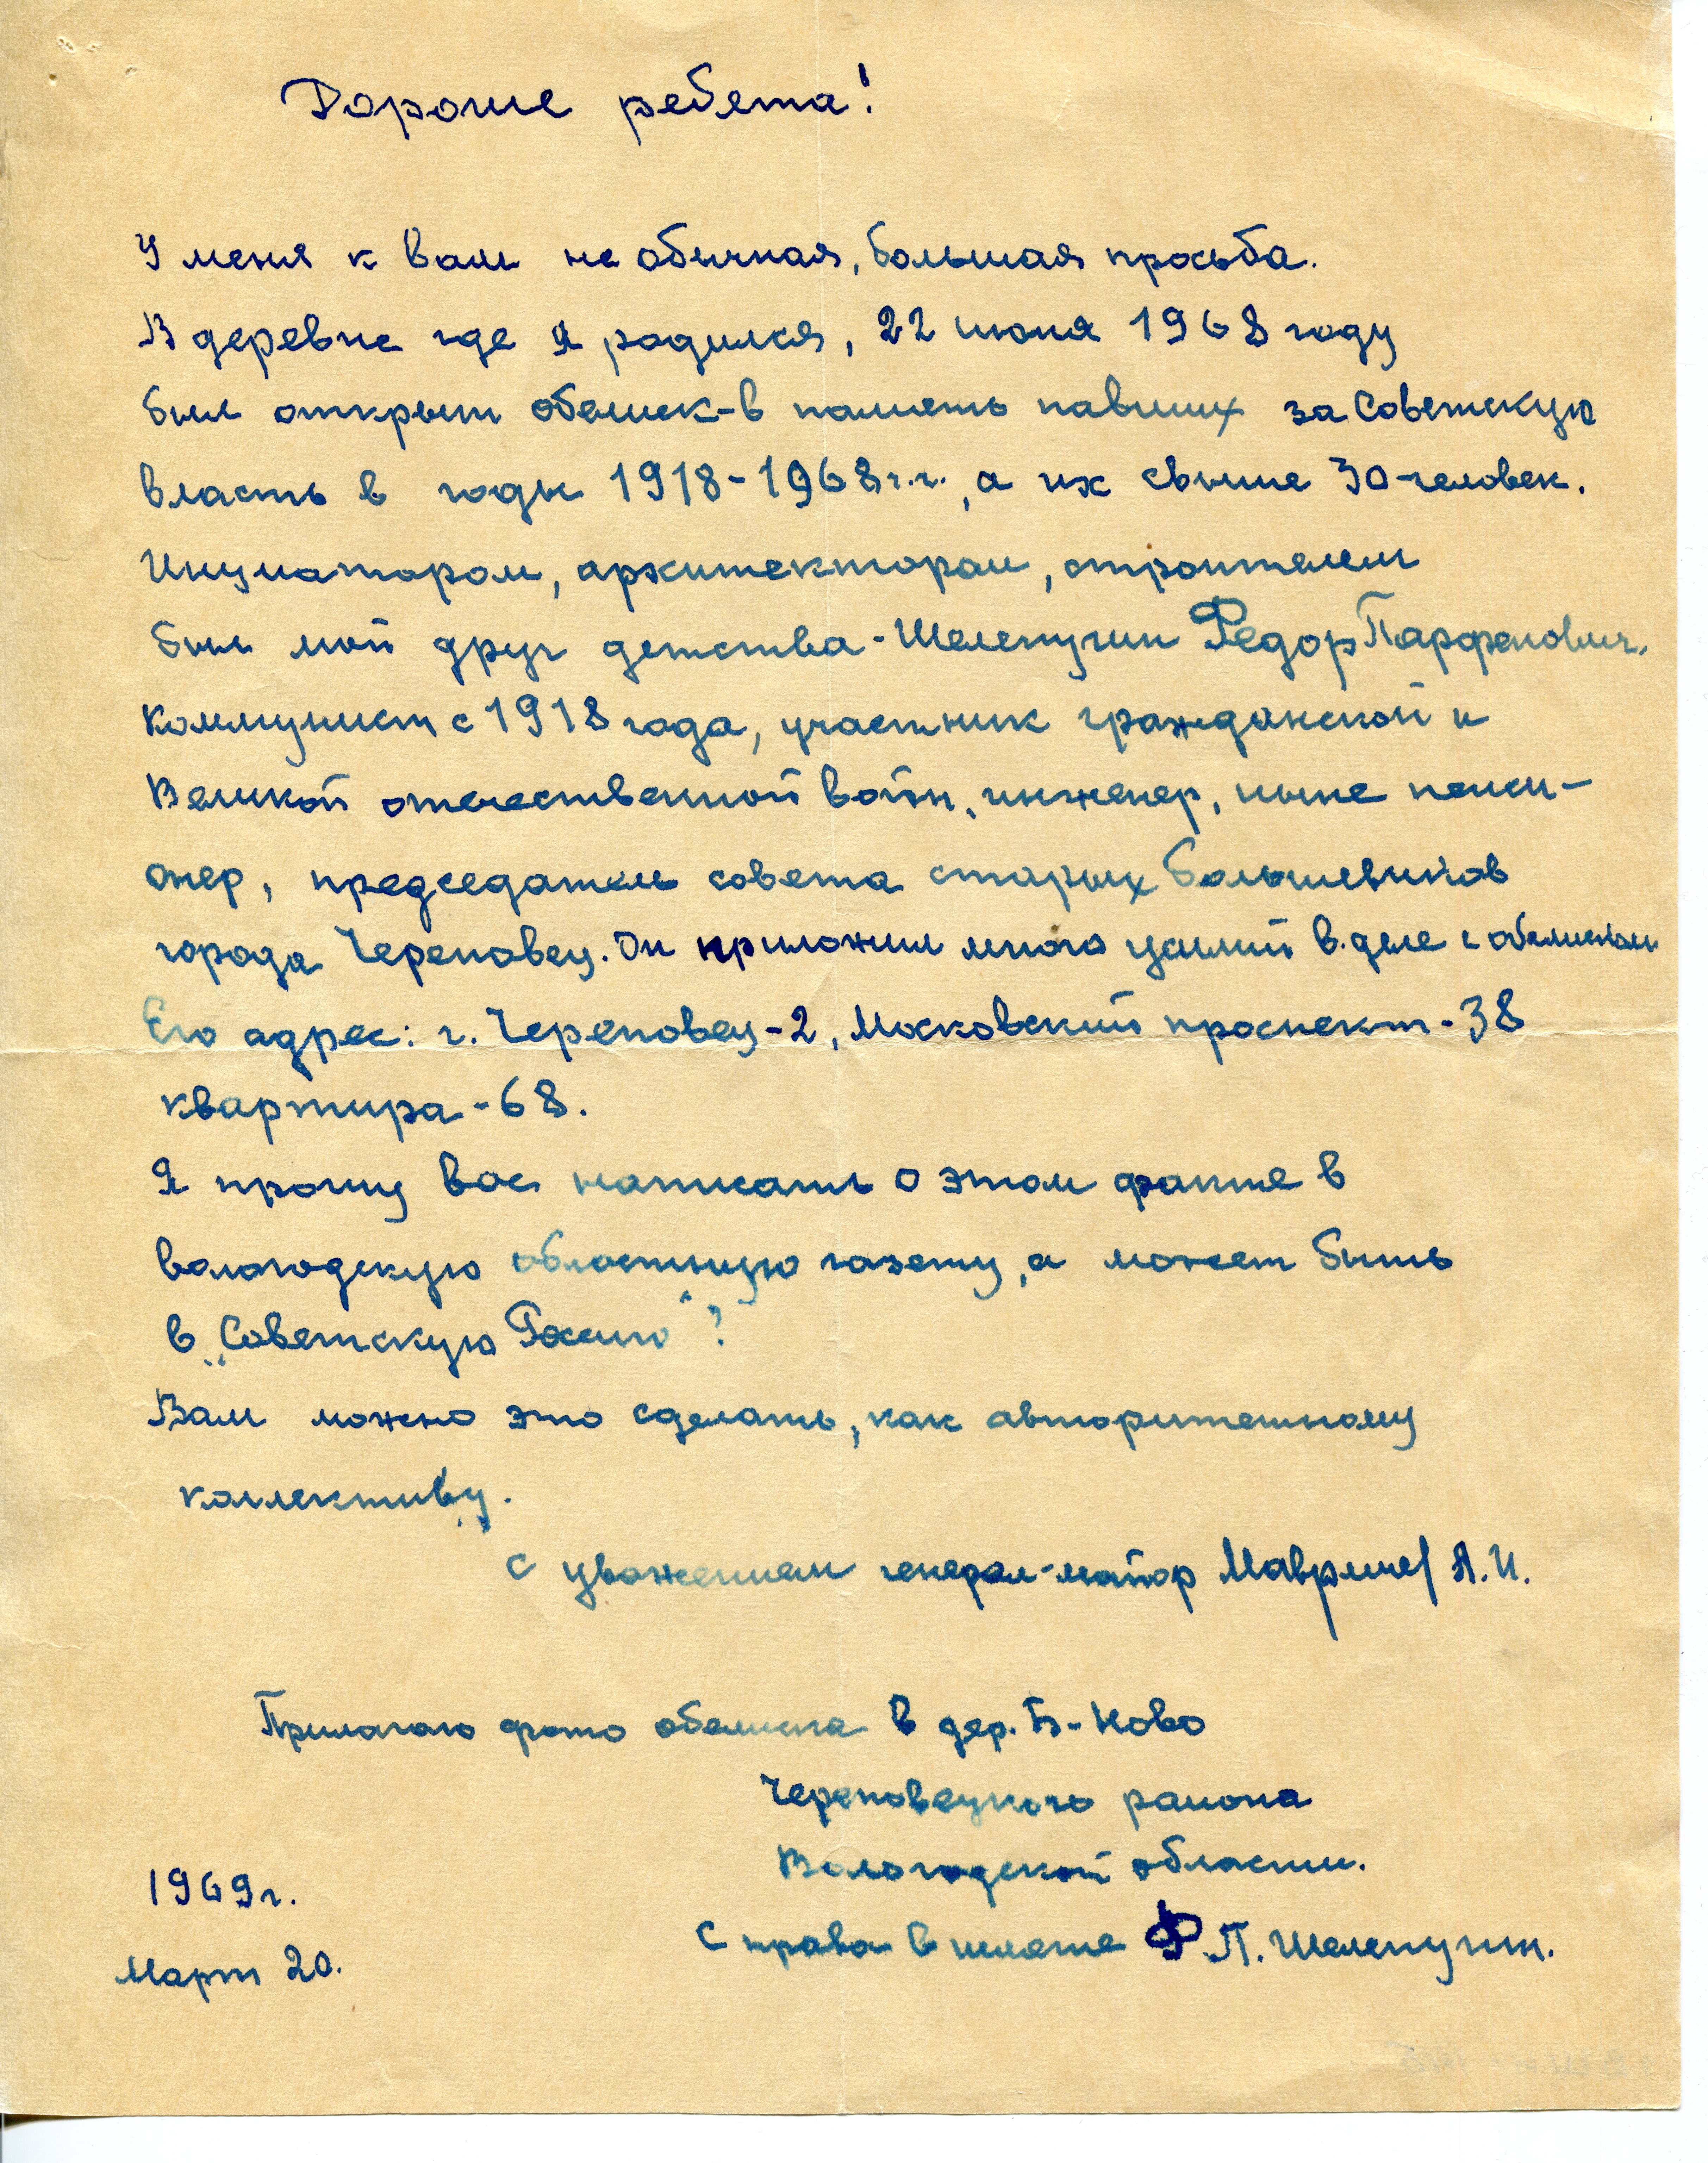 Дорогие ребята!
У меня к Вам не обычная, большая просьба.
В деревне где я родился, 22 июня 1968 году
был открыт обелиск-в память павших за Советскую
власть в годы 1918-1968 г.г., а их свыше 30-человек.
Инициатором, архитектором, строителем
был мой друг детства - Шелепугин Федор Парфенович.
Коммунист с 1918 года, участник гражданской и
Великой отечественной войн, инженер, ныне пенси-
онер, председатель совета старых большевиков
города Череповец. Он приложил много усилий в деле с обелиском
Его адрес: г. Череповец-2, Московский проспект-38
квартира-68.
Я прошу вас написать о этом факте в
вологодскую областную газету, а может быть
в „Советскую Россию"?
Вам можно это сделать, как авторитетному
коллективу.
С уважением генерал-майор А.И.
Прилагаю фото обелиска в дер. Б-Ново
Череповецкого района
Вологодской области.
1969 г.
Справа в шляпе Ф.П. Шелепугин.
Март 20.